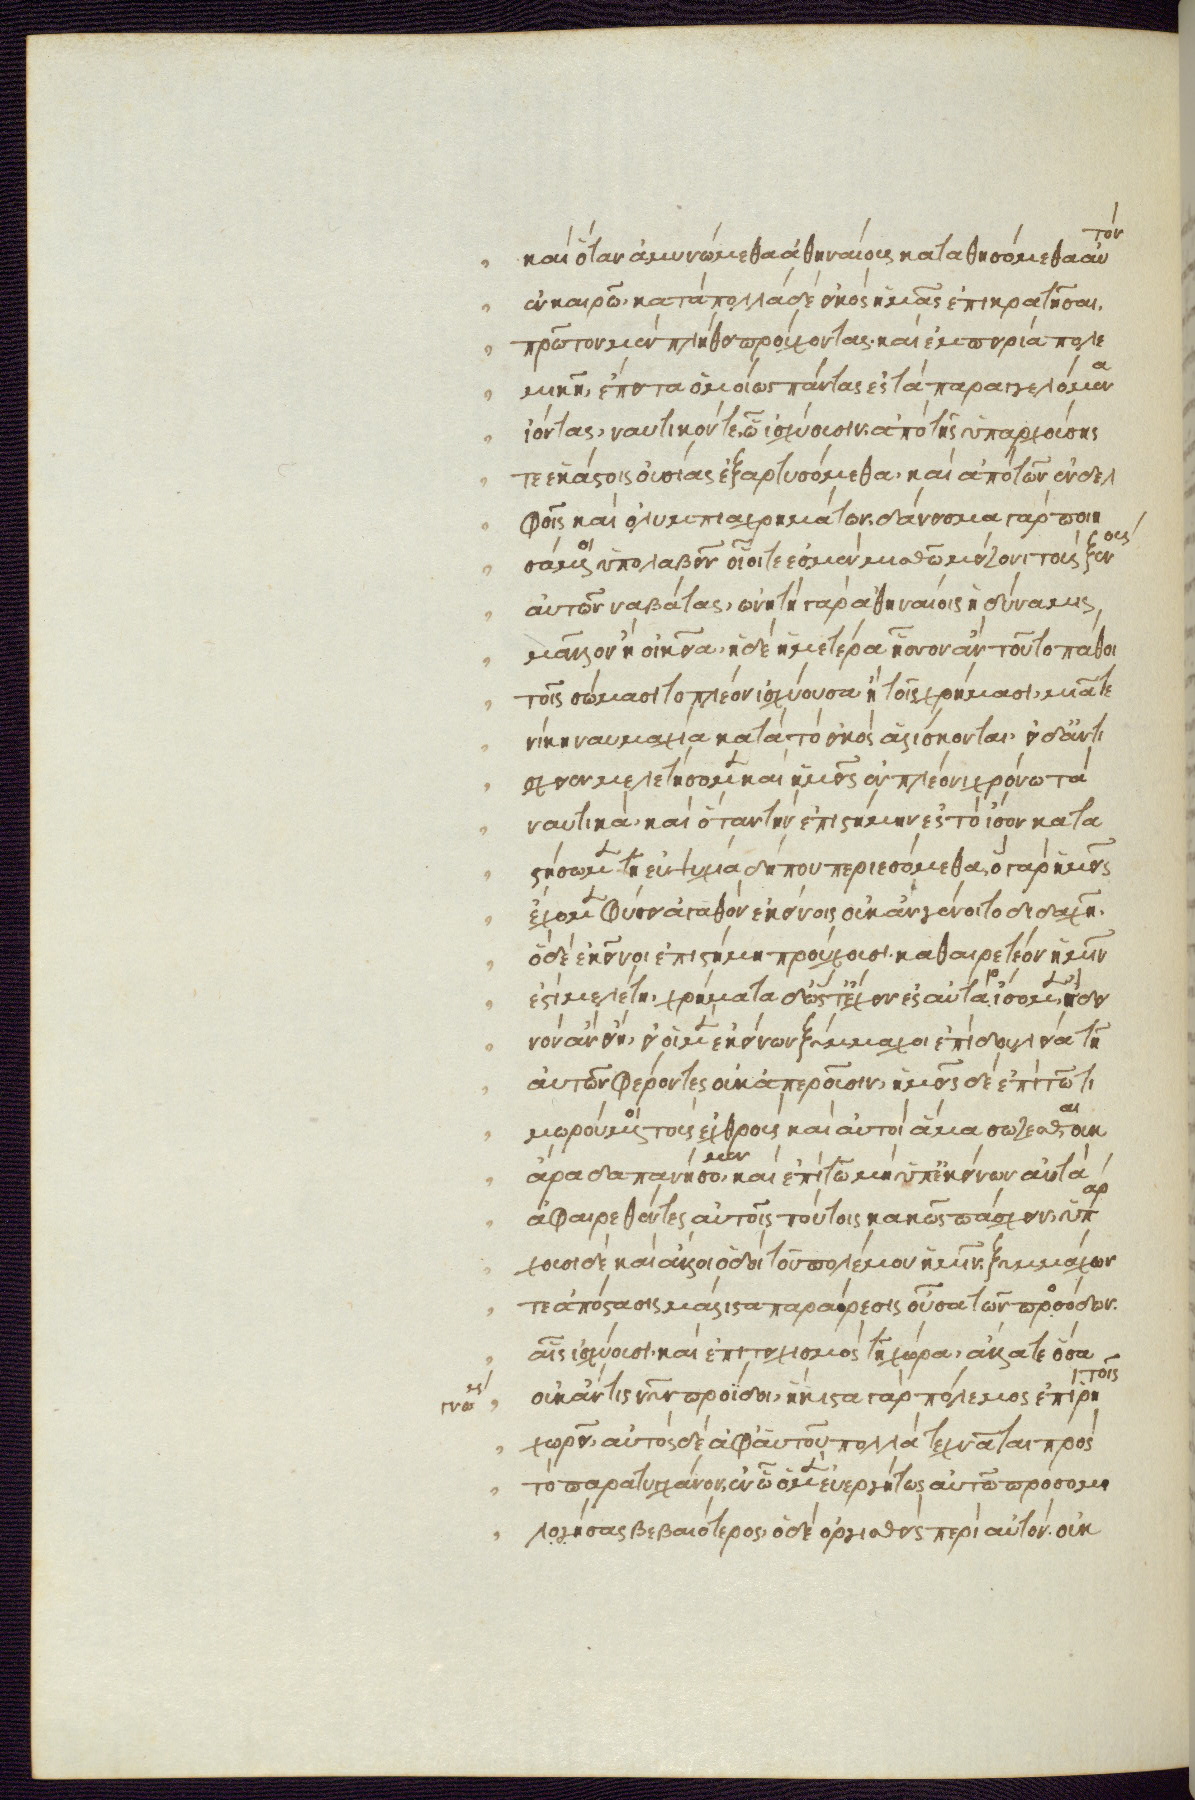 καὶ ὅταν ἀμυνώμεθα ἀθηναίους καταθησόμεθα αὐτὸν
ἐν καιρῶ· κατὰ πολλὰ δὲ εἰκὸς ἡμᾶς ἐπικρατῆσαι.
πρῶτον μὲν πλήθει προύχοντας· καὶ ἐμπειρία πολε
μικῆ, ἔπειτα ὁμοίως πάντας ἐς τὰ παραγγελόμενα
ἰόντας, ναυτικόν τε, ὧ ἰσχύουσιν· ἀπὸ τῆς ὑπαρχούσης
τε ἑκάστοις οὐσίας ἐξαρτυσόμεθα, καὶ ἀπὸ τῶν ἐν δελ
φοῖς καὶ ὀλυμπία χρημάτων. δάνεισμα γὰρ ποιη
σάμενοι ὑπολαβεῖν οἷοί τε ἐσμὲν μισθῶ μείζονι τοὺς ξένους
αὐτῶν ναβάτας, ὠνητὴ γὰρ ἀθηναίοις ἡ δύναμις,
μᾶλλον ἢ οἰκεία, ἡ δὲ ἡμετέρα ἧσσον ἂν τοῦτο πάθοι
τοῖς σώμασι το πλέον ἰσχύουσα ἢ τοῖς χρήμασι, μιᾶ τε
νίκη ναυμαχία κατὰ τὸ εἰκὸς ἁλίσκονται, εἰ δ' ἀντί
σχοιεν μελετήσομεν καὶ ἡμεῖς ἐν πλέονι χρόνω τὰ
ναυτικά, καὶ ὅταν τὴν ἐπιστήμην ἐς τὸ ἴσον κατα
στήσωμεν τῆ εὐψυχία δήπου περιεσόμεθα, ὃ γὰρ ἡμεῖς
ἔχομεν φύσει ἀγαθὸν ἐκείνοις οὐκ ἂν γένοιτο διδαχῆ.
ὃ δὲ ἐκεῖνοι ἐπιστήμη προύχουσι· καθαιρετέον ἡμῖν
ἐστὶ μελέτη, χρήματα δ' ὥστ' ἔχειν ἐς αὐτὰ οἴσομεν, ἢ δει
νὸν ἂν εἴη, εἰ οἱ μὲν ἐκείνων ξύμμαχοι ἐπὶ δουλεία τῆ
αὐτῶν φέροντες οὐκ ἀπεροῦσιν, ἡμεῖς δὲ ἐπὶ τῶ τι
μωρούμενοι τοὺς ἐχθροὺς καὶ αὐτοὶ ἅμα σώζεσθαι οὐκ
ἄρα δαπανήσομεν, καὶ ἐπὶ τῶ μὴ ὑπ' ἐκείνων αὐτὰ
ἀφαιρεθέντες αὐτοῖς τούτοις κακῶς πάσχειν, ὑπάρ
χουσι δὲ καὶ ἄλλοι ὁδοὶ τοῦ πολέμου ἡμῖν, ξυμμάχων
τε ἀπόστασις μάλιστα παραίρεσις οὖσα τῶν προσόδων.
αἷς ἰσχύουσι· καὶ ἐπιτειχισμὸς τῆ χώρα, ἄλλα τε ὅσα
οὐκ ἄν τις νῦν προΐδοι, ἥκιστα γὰρ πόλεμος ἐπὶ ῥητοῖς
χωρεῖ, αὐτὸς δὲ ἀφ' αὑτοῦ πολλὰ τεχνᾶται πρὸς
τὸ παρατυγχάνον, ἐν ὧ ὁ μὲν εὐοργήτως αὐτῶ προσομι
λήσας βεβαιότερος, ὁ δὲ ὀργισθεὶς περὶ αὐτὸν. οὐκ